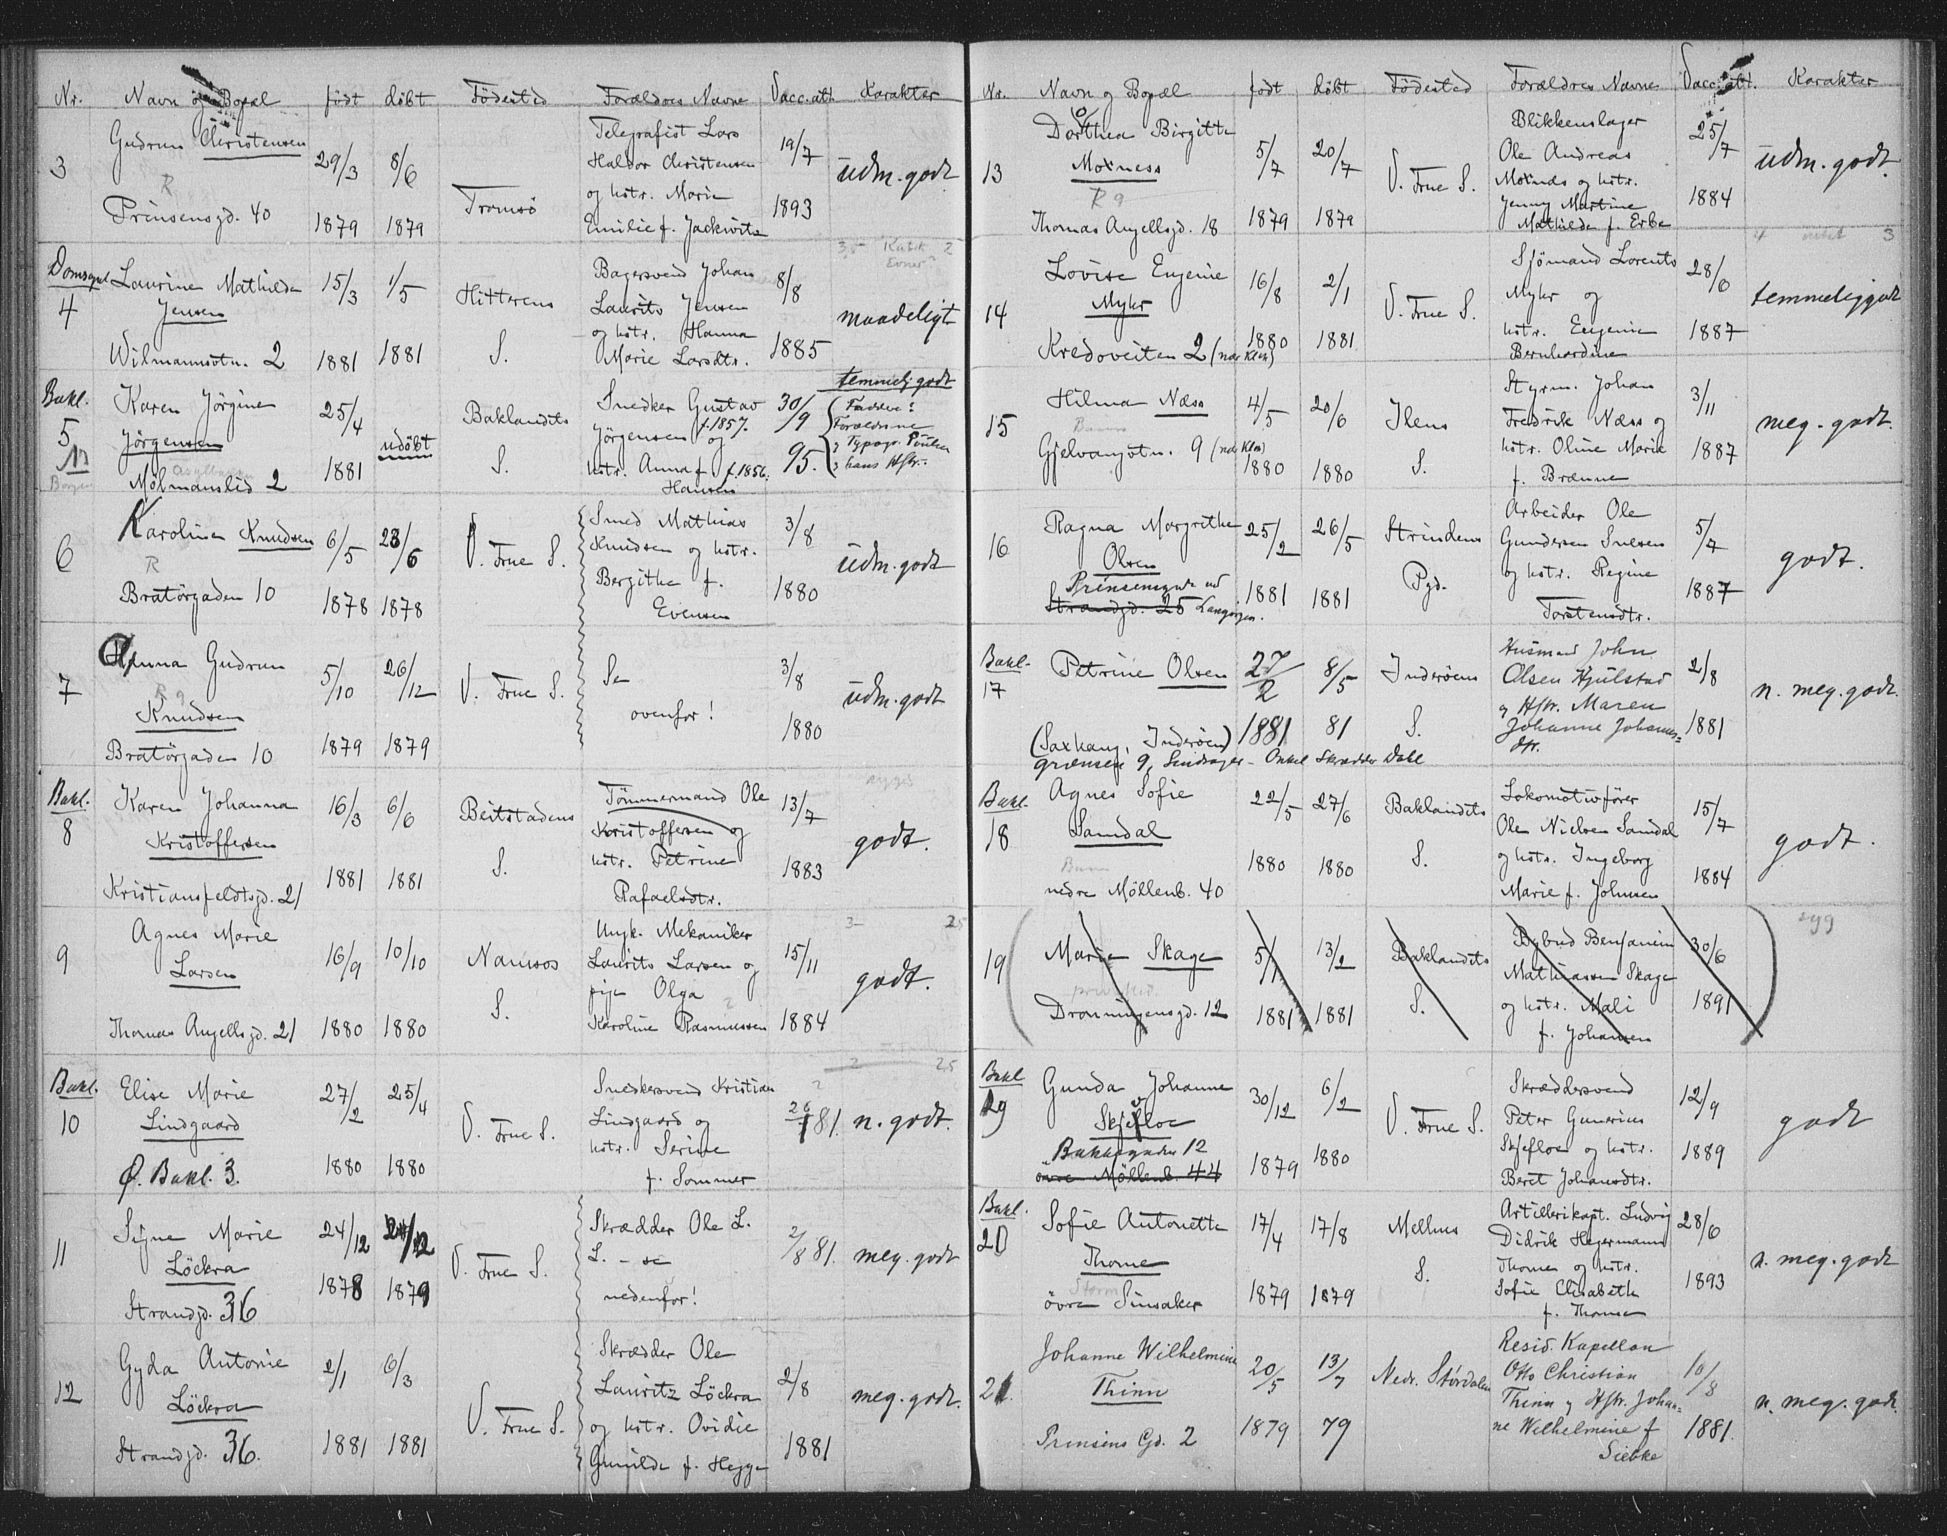 Nr. Navn og Bopæl født døbt Fødested Forældres Navne Vacc.att. Karakter
3 Gudrun Christensen
R
Prinsensgd. 40
29/3 1879
8/6 1879
Tromsö
Telegrafist Lars
Haldor Christensen
og hstr. Marie
Emilie f. Jackwitz
19/7 1893
udm. godt
Domsogn
4 Laurine Mathilde
Jensen
Wilmannsvtn. 2
15/3 1881
1/5 1881
Hitterens
S.
Bagersvend Johan
Laurits Jensen
og hstr. Hanna
Marie Larsdtr.
8/8 1885
maadeligt
Bakl.
5 Karen Jörgine
Jörgensen
Molmanslid 2
25/4 1881
udöbt
Baklandets
S.
Snedker Gustav
Jörgensen f. 1857. og
hstr. Anna f. f. 1856.
Hansen
30/9 95.
temmel. godt
6 Karoline Knudsen
R
Bratörgaden 10
6/5 1878
23/6 1878
V. Frue S.
Smed Mathias
Knudsen og hstr.
Bergithe f.
Evensen
3/8 1880
udm. godt
7 Anna Gudrun
R 9
Knudsen
Bratörgaden 10
5/10 1879
26/12 1879
V. Frue S.
Se
ovenfor!
3/8 1880
udm. godt
Bakl.
8 Karen Johanna
Kristoffersen
Kristiansfeldtsgd. 21
16/3 1881
6/6 1881
Beitstadens
S.
Tömmermand Ole
Kristoffersen og
hstr. Petrine
Rafaelsdtr.
13/7 1883
godt.
9 Agnes Marie
Larsen
Thomas Angellsgd. 21
16/9 1880
10/10 1880
Namsos
S.
Ungk. Mekaniker
Laurits Larsen og
pige Olga
Karoline Rasmussen
15/11 1884
godt.
Bakl.
10 Elise Marie
Lindgaard
Ø. Bakl. 3.
27/2 1880
25/4 1880
V. Frue S.
Snedkersvend Kristian
Lindgaard og
hstr. Serine
f. Sommer
81.
n. godt.
11 Signe Marie
Löckra
Strandgd. 36
24/12 1878
1879
V. Frue S.
Skrædder Ole L.
L. - se
nedenfor!
2/8 81.
meg. godt
12 Gyda Antonie
Löckra
Strandgd. 36.
2/1 1881
6/3 1881
V. Frue S.
Skrædder Ole
Lauritz Löckra
og hstr. Ovidie
Gunilde f. Hegge
2/8 1881
meg. godt.
Nr. Navn og Bopæl født döbt Födested Forældres Navne Vacc.att. Karakter
13 Dorthea Birgitte
Moxness
R 9
Thomas Angellsgd. 18
5/7 1879
20/7 1879
V. Frue S.
Blikkenslager
Ole Andreas
Moxnes og hstr.
Jenny Martine
Mathilde f. Erbe
25/7 1884
udm. godt.
14 Lovise Eugenie
Myhr
Kredoveiten 2
16/8 1880
2/1 1881
V. Frue S.
Sjömand Lorents
Myhr og
hstr. Eugenie
Bernhardine
28/6 1887
temmelig godt
15 Hilma Næss
Gjelvangvtn. 9
4/5 1880
20/6 1880
Ilens
S.
Styrm. Johan
Fredrik Næss og
hstr. Oline Marie
f. Brænne
3/11 1887
meg. godt.
16 Ragna Margrethe
Olsen
Prinsensgade ved
Strandgd. 25
25/2 1881
26/5 1881
Strindens
Pgd.
Arbeider Ole
Gundersen
og hstr. Regine
Torstensdtr.
5/7 1887
godt.
Bakl.
17 Petrine Olsen
(Saxhaug, Inderöen)
27/2 1881
8/5 81
Inderöens
S.
Husmand John
Olsen Hjulstad
og Hstr. Maren
Johanne Johannes=
dtr.
2/8 1881
n. meg. godt.
Grænsen 9, - Onkel Skrædder Dahl
Bakl.
18 Agnes Sofie
Samdal
nedre Möllenb. 40
22/5 1880
27/6 1880
Baklandets
S.
Lokomotivförer
Ole Nielsen Samdal
og hstr. Ingeborg
Marie f. Johnsen
15/7 1884
godt.
19 Marie Skage
Dronningensgd. 12
5/1 1881
13/2 1881
Baklandets
S.
Bybud Benjamin
Mathiassen Skage
og hstr. Mali
f. Johansen
30/6 1891
syg
Bakl.
19 Gunda Johanne
Skjefloe
Bakkegaden 12
övre Möllenb. 44
30/12 1879
6/2 1880
V. Frue S.
Skræddersvend
Peter Gunerius
Skjefloe og hstr.
Beret Johansdtr.
12/9 1889
godt
Bakl.
20 Sofie Antonette
Thorne
övre Sinsaker
17/4 1879
17/8 1879
Melhus
S.
Artillerikapt. Ludvig
Didrik Hegermann
Thorne og hstr.
Sofie Elisabeth
f. Thorne
28/6 1893
n. meg. godt
21. Johanne Wilhelmine
Thinn
Prinsens Gd. 2
20/5 1879
13/7 79
Nedr. Stördalen
Resid. Kapellan
Otto Christian
Thinn og Hstr. Johan=
ne Wilhelmine f
Siebke
10/8 1881.
n. meg. godt.